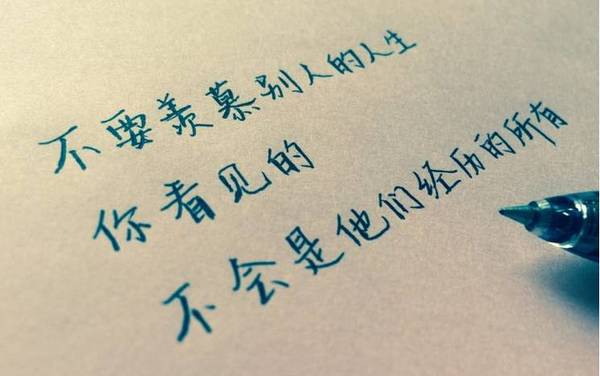 不要羡慕别人的人生
你看见的
不会是他们经历的所有